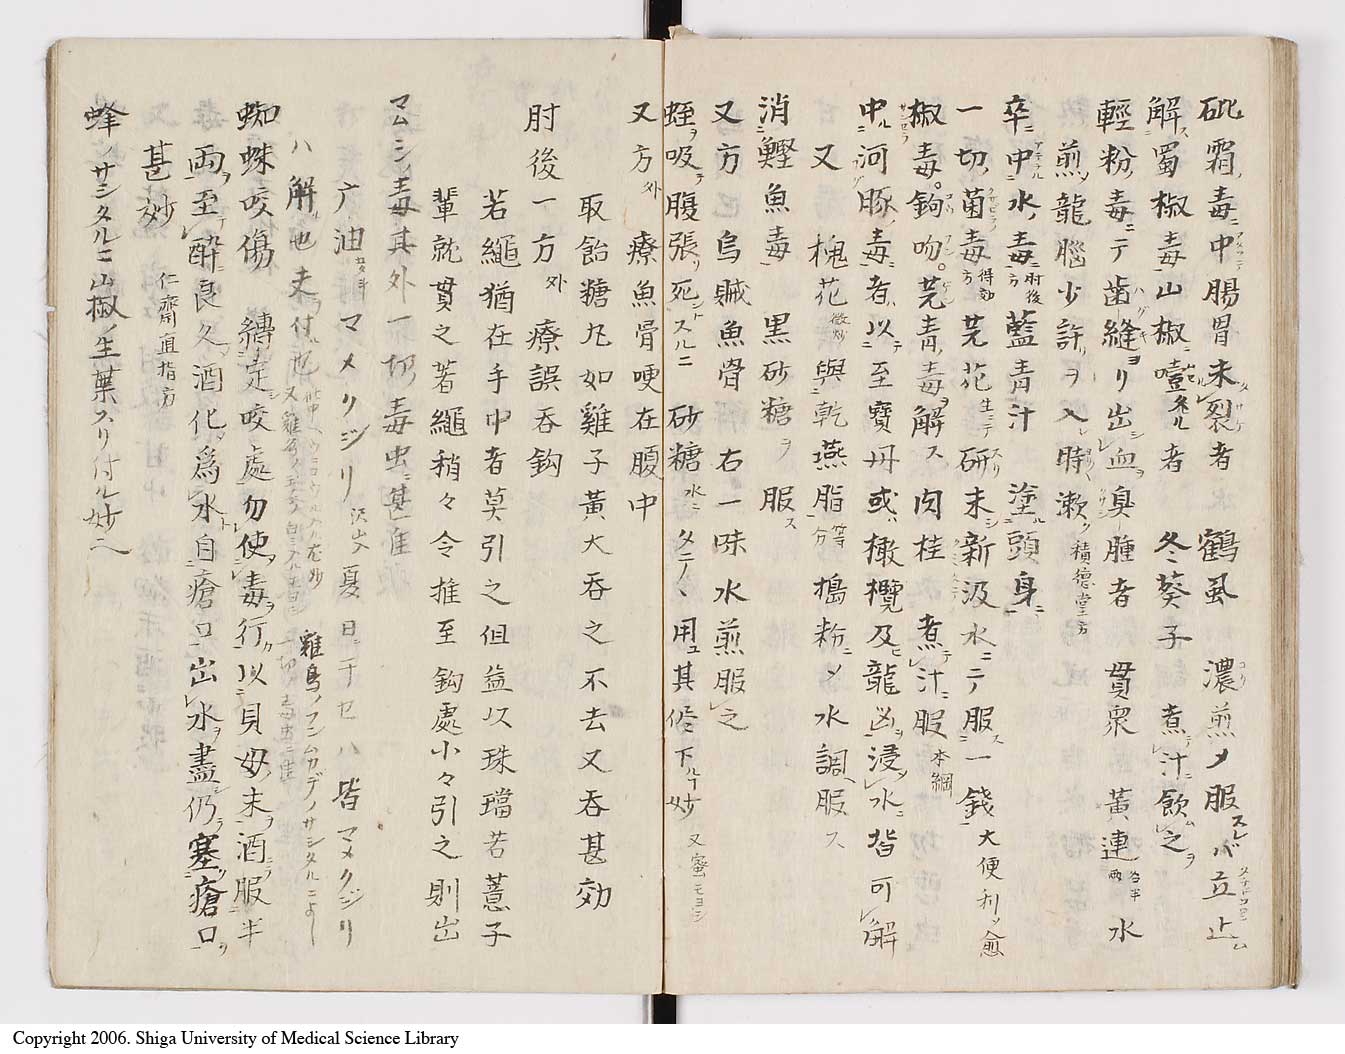 砒霜ノ毒ニ中腸胃未裂者　鶴虱　濃煎メ服スレバ立止ム
解蜀椒毒山椒ニ噎タル者　冬葵子　煮汁飲之
輕粉ノ毒ニテ歯縫ヨリ出血臭腫者　貫衆　黄連各半両　水
煎龍脳少許ヲ入時漱　積德堂方
卒中水毒方　肘後　藍青汁　塗頭身ニ
一切菌毒方　得効　芫花生ニテ研末新汲水ニテ服一錢　大便利メ愈
椒毒。鉤吻。芫青毒解ス　肉桂　煮汁服　本綱
中河豚毒者以至寶丹或ハ橄欖及龍凶浸水皆可解
又　槐花微炒與乾燕脂等分搗粉ニメ水調服ス
消鰹魚毒　黒砂糖ヲ服ス
又方　烏賊魚骨右一味水煎服之
蛭ヲ吸腹張リ死スルニ　砂糖水ニタテヽ用ユ其修下ルヿ妙　又蜜モヨシ
又方外　療魚骨哽在腹中
取飴糖九如雞子黃大吞之不去又吞甚効
肘後一方外　療誤吞鈎
若繩猶在手中者莫引之但益以珠璫若薏子
輩就貫之著繩稍々令推至鈎處小々引之則出
マムシノ毒其外一切毒虫ニ甚ダ佳
广油　マメクジリ　沢山入　夏日ニ干セハ皆マメクジリ
ハ解也夫ヲ付ル也
雞鳥ノフンムカデノサシタルニよし
蜘蛛咬傷　縛定咬處勿使毒行以貝母末酒服半
両至醉良久酒化為水自瘡口出水盡仍塞瘡口
甚妙　仁齋直指方
蜂ノサシタルニ山椒ノ生葉スリ付ル妙也
Copyright 2006. Shiga University of Medical Science Library